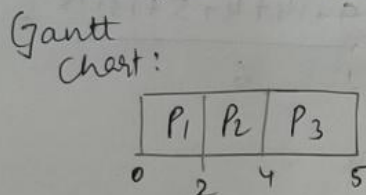 Gantt
chart:
P1 P2 P3
0 2 4 5